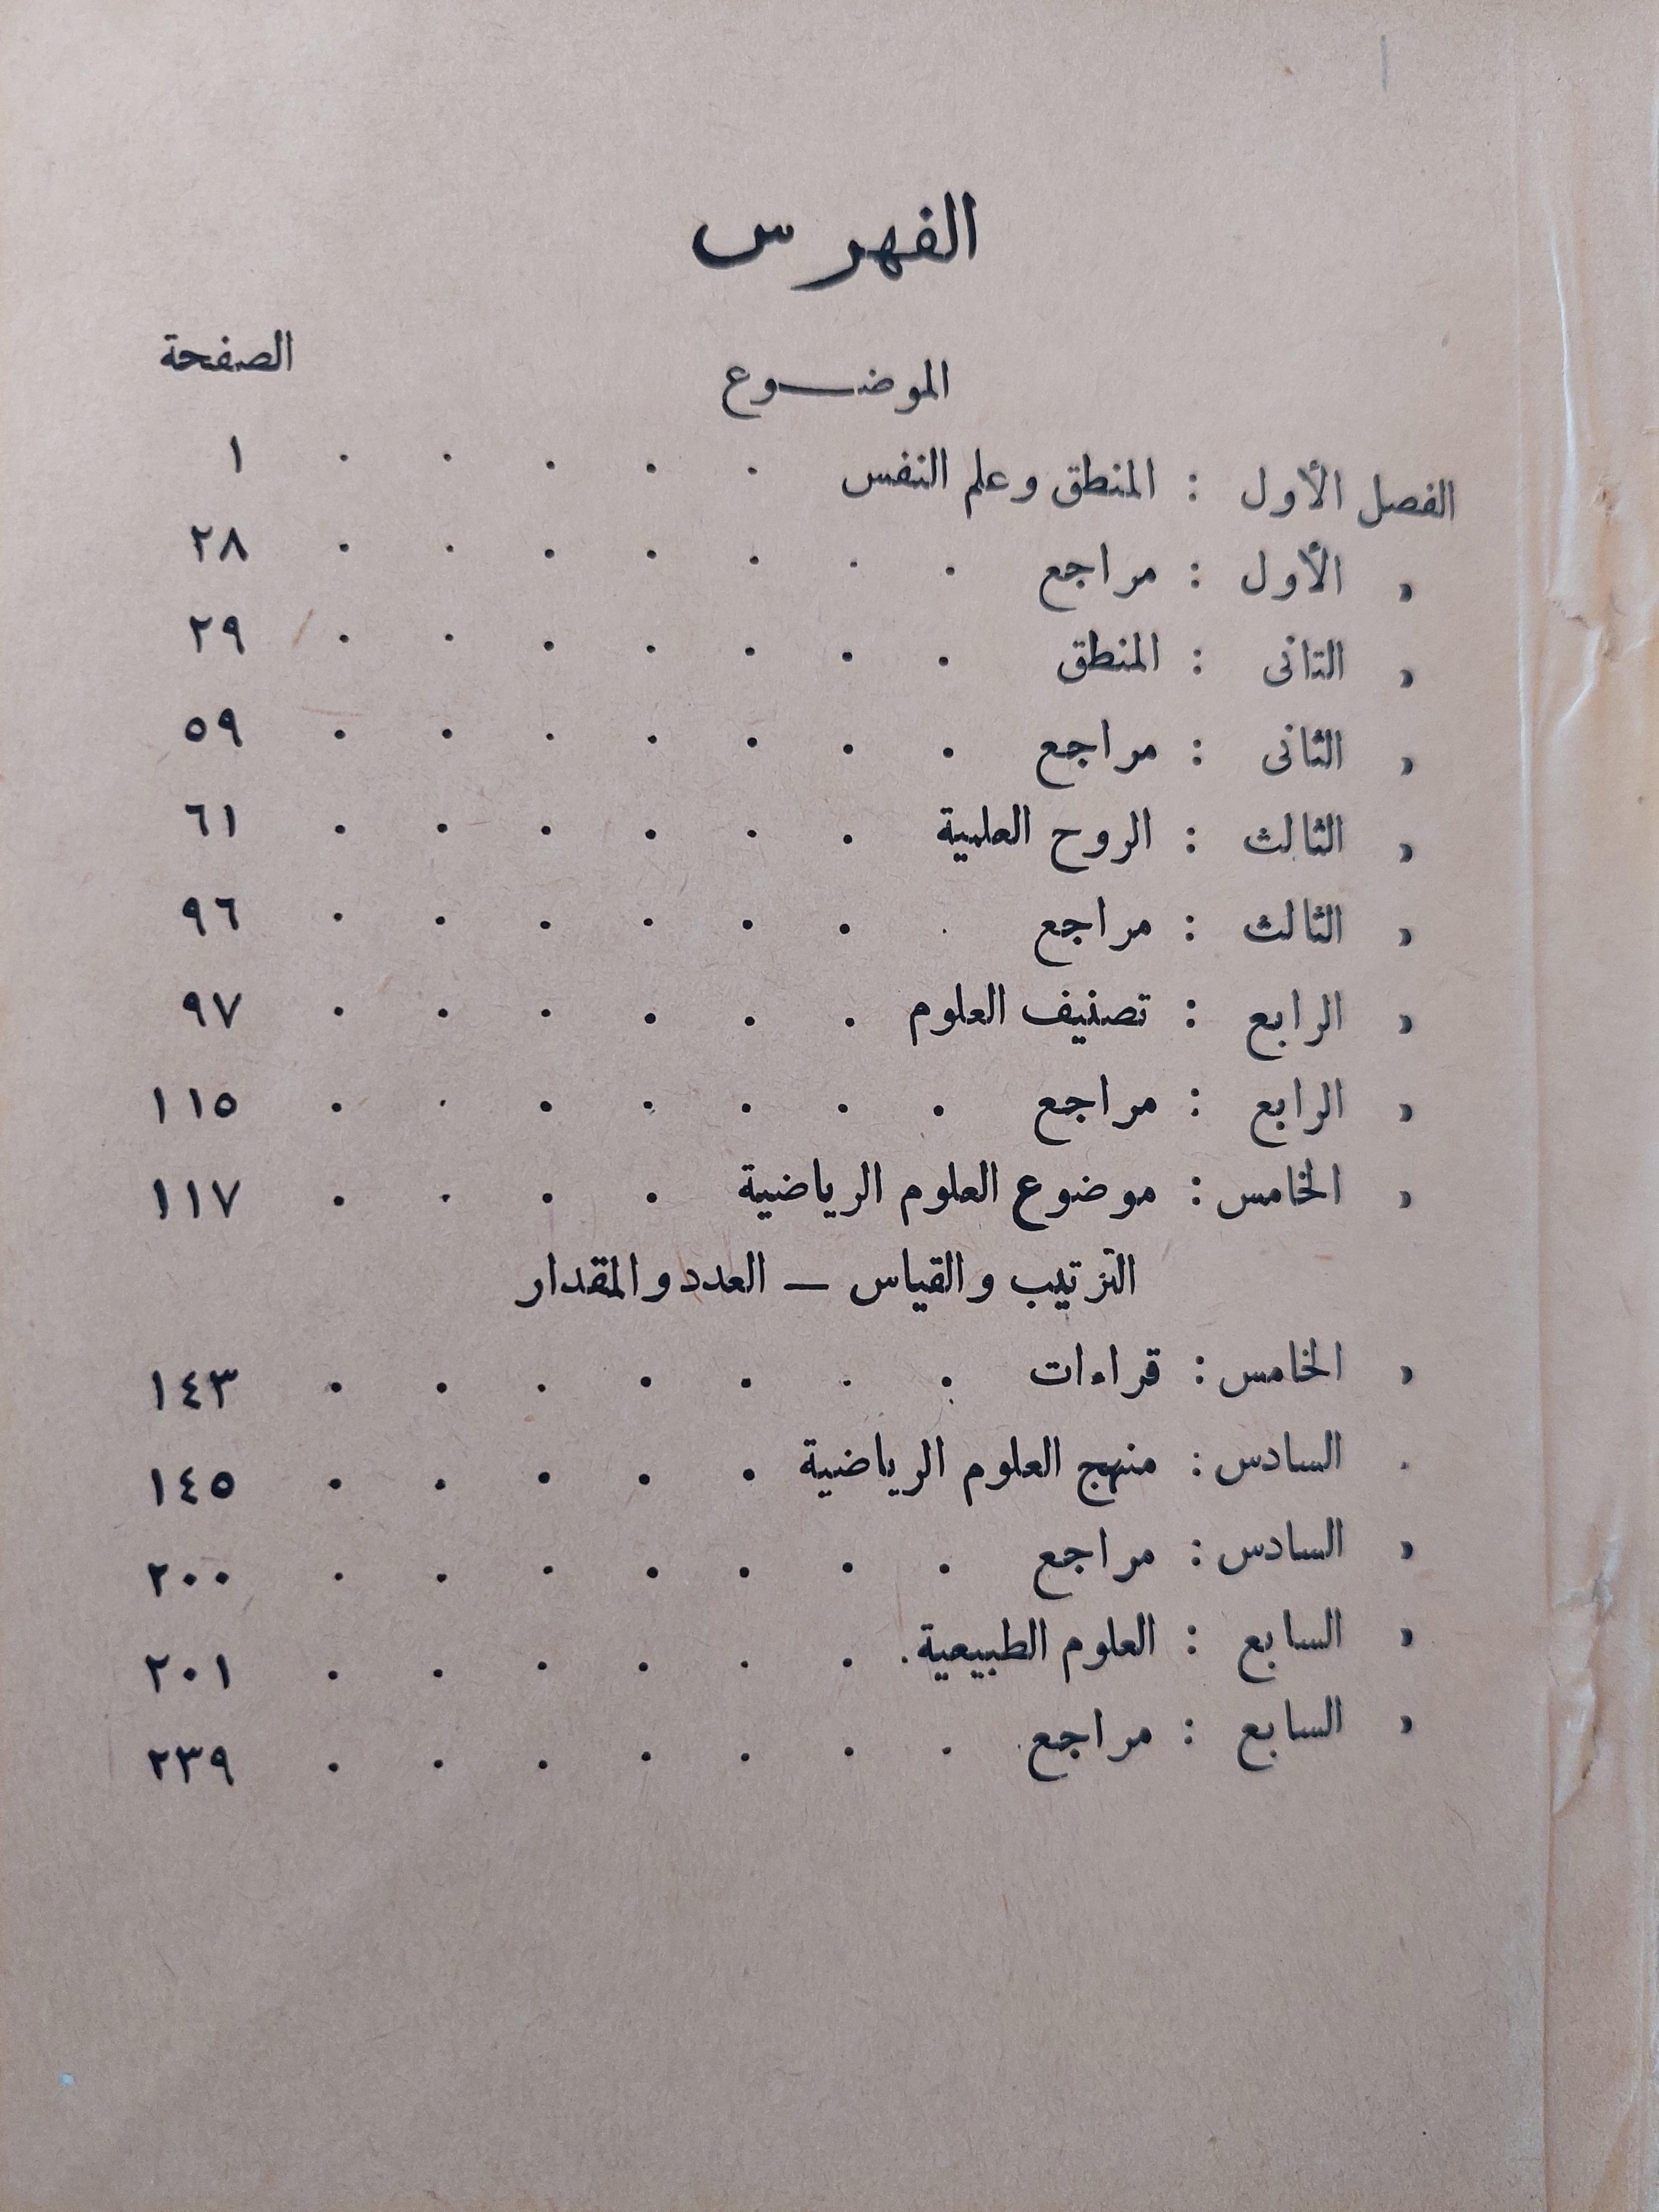 الفهرس
الموضــوع الصفحة
الفصل الأول : المنطق وعلم النفس . . . . . ١
« الأول : مراجع . . . . . . . ٢٨
« التانى : المنطق . . . . . . . ٢٩
« الثانى : مراجع . . . . . . . ٥٩
« الثالث : الروح العلمية . . . . . . ٦١
« الثالث : مراجع . . . . . . . ٩٦
« الرابع : تصنيف العلوم . . . . . . ٩٧
« الرابع : مراجع . . . . . . . ١١٥
« الخامس : موضوع العلوم الرياضية . . . . ١١٧
الترتيب والقياس — العدد والمقدار
« الخامس : قراءات . . . . . . . ١٤٣
. السادس : منهج العلوم الرياضية . . . . . ١٤٥
« السادس : مراجع . . . . . . . ٢٠٠
« السابع : العلوم الطبيعية . . . . . . . ٢٠١
« السابع : مراجع . . . . . . . ٢٣٩